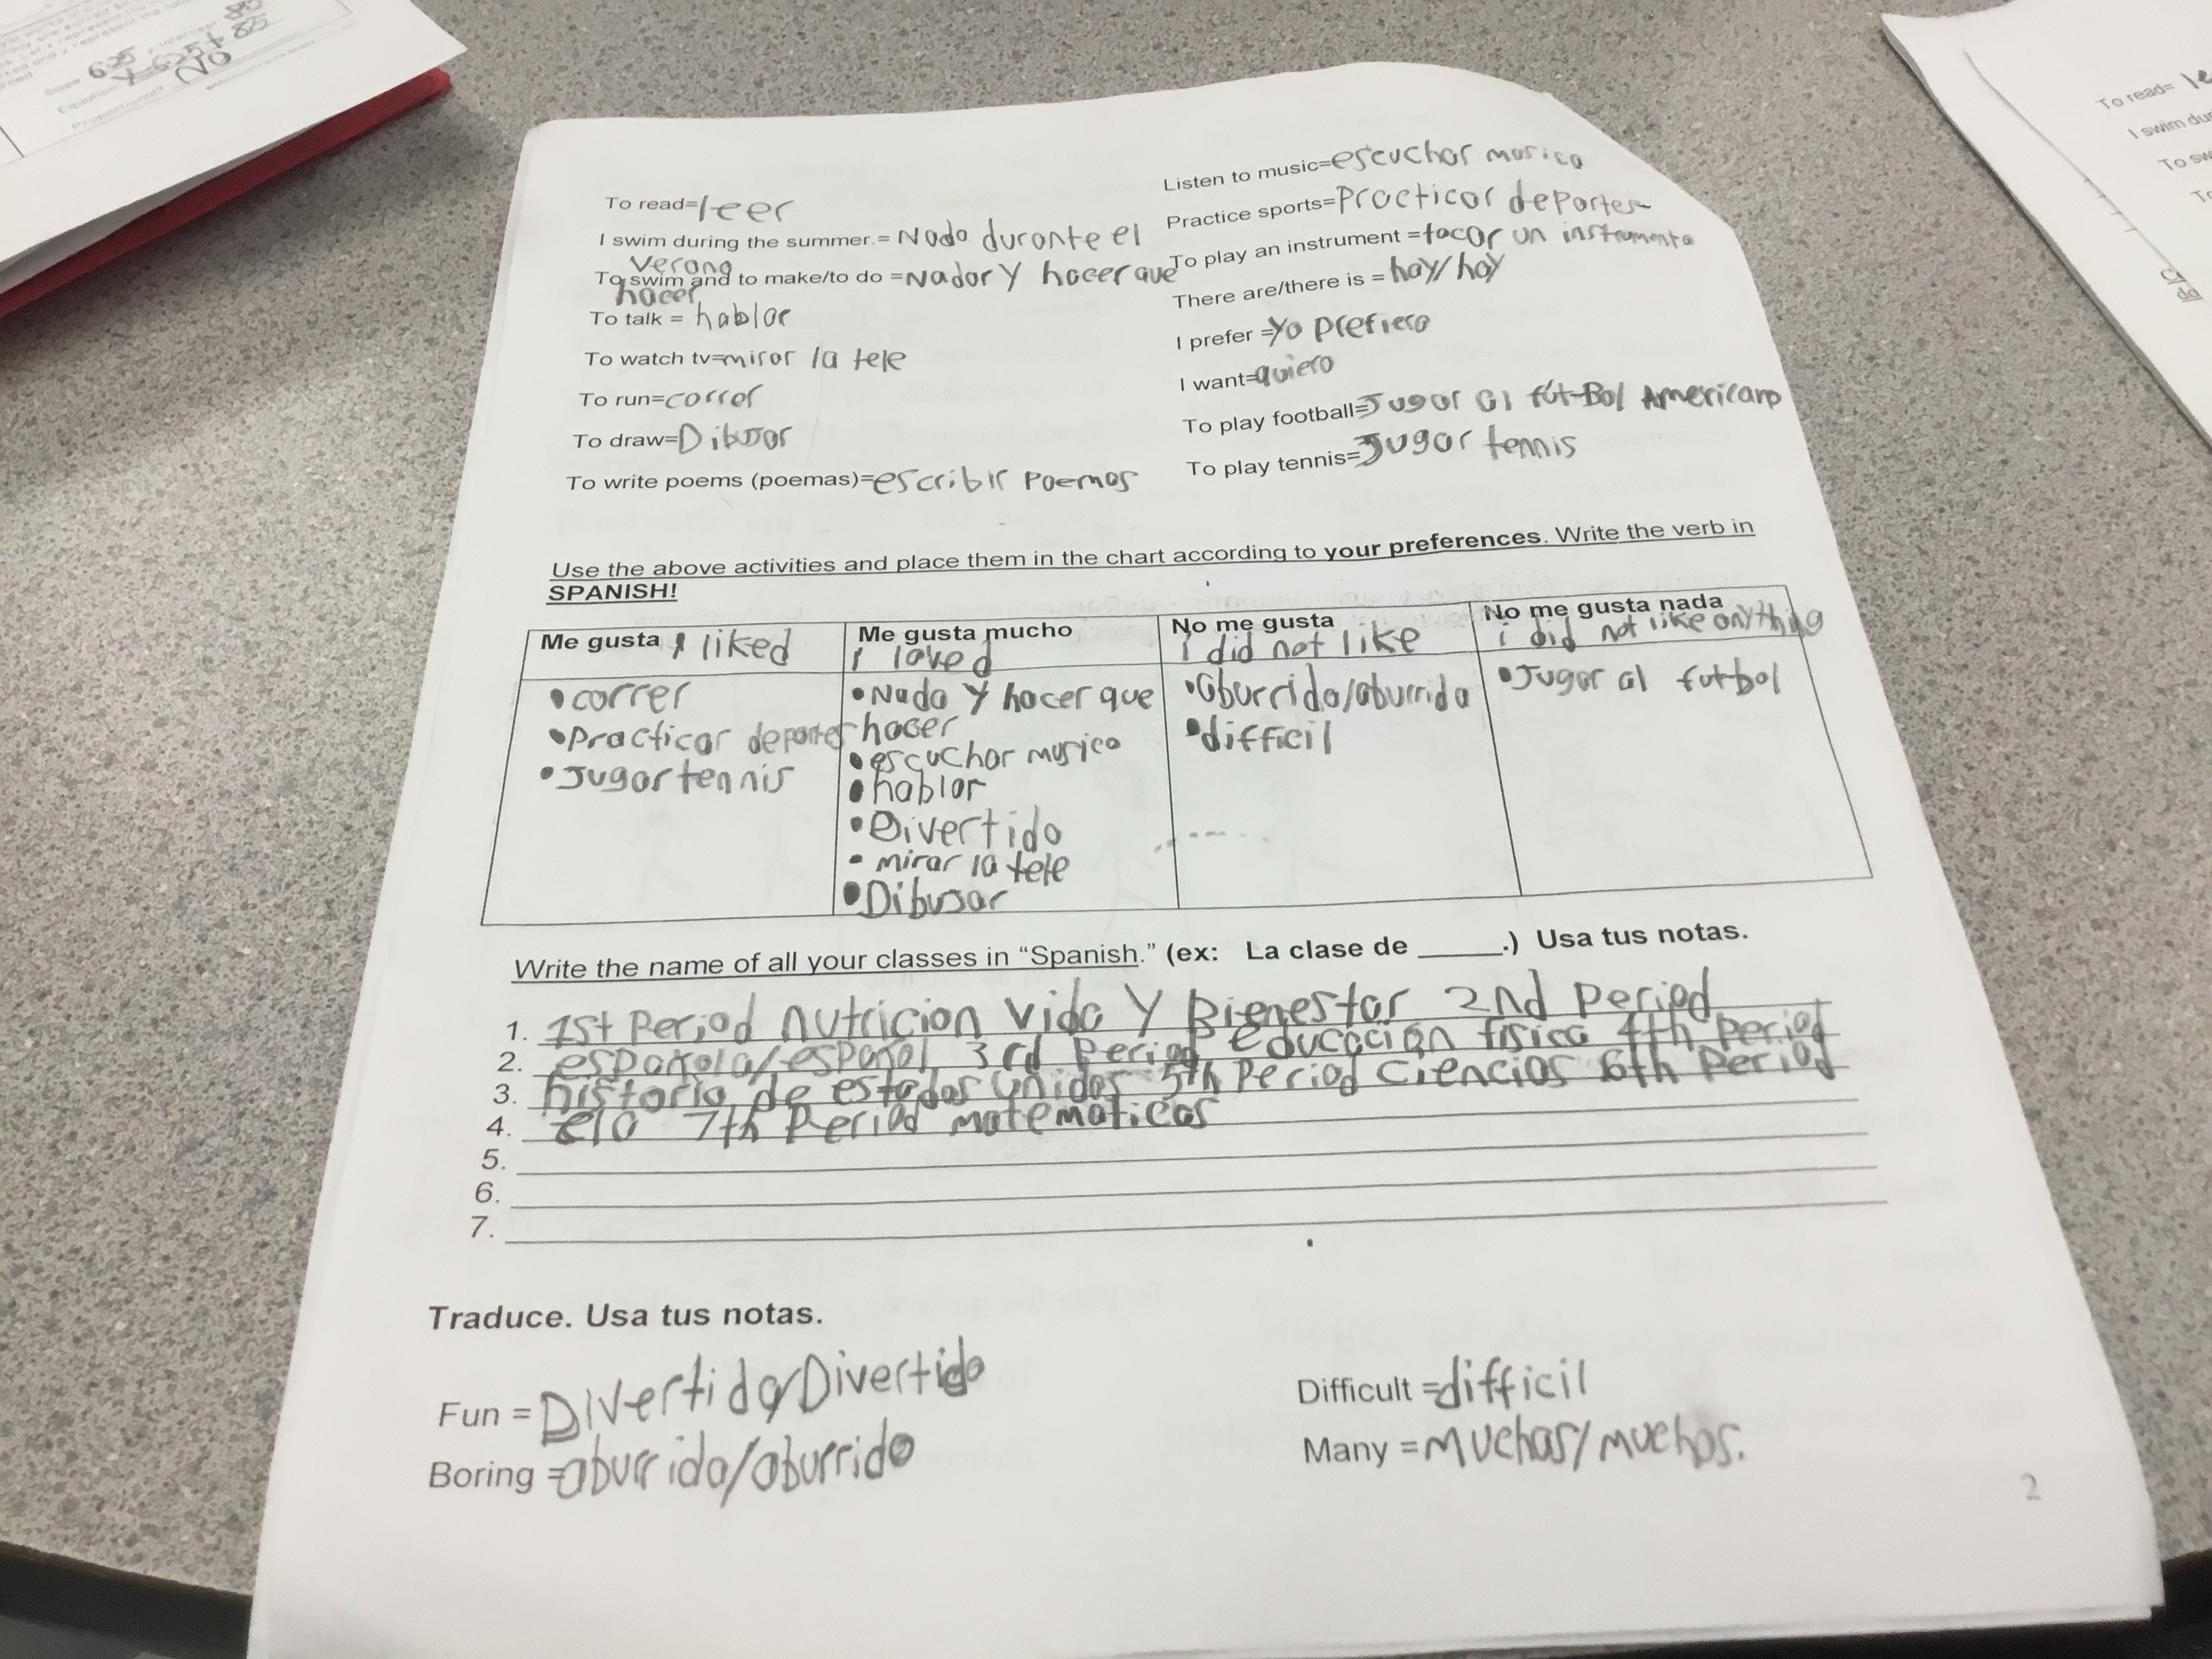 Slope 625
Equation
Proportional? NO
To read=leer
I swim during the summer.= Nado durante el
verano
To swim and to make/to do =Nadar Y hacer que
hacer
To talk = hablar
To watch tv=mirar la tele
To run=correr
To draw=Dibusar
To write poems (poemas)=escribir Poemas
Listen to music=escuchar musica
Practice sports=Practicar deportes
To play an instrument =tocar un instrumento
There are/there is = hay/hay
I prefer =Yo prefiero
I want=quiero
To play football=Jugar al fút-Bol Americano
To play tennis=Jugar tennis
Use the above activities and place them in the chart according to your preferences. Write the verb in
SPANISH!
Me gusta I liked
• correr
• Practicar deportes
• Jugar tennis
Me gusta mucho
I loved
• Nado Y hacer que
hacer
• escuchar musica
• hablar
• Divertido
• mirar la tele
• Dibusar
No me gusta
I did not like
• aburrido/aburrida
• difficil
No me gusta nada
i did not like anything
• Jugar al futbol
Write the name of all your classes in “Spanish.” (ex: La clase de ______.) Usa tus notas.
1. 1st Period nutricion Vida Y Bienestar 2nd Period
2. española/español 3rd Period educación fisica 4th Period
3. historia de estados unidos 5th Period Ciencias 6th Period
4. ela 7th Period matematicas
5.
6.
7.
Traduce. Usa tus notas.
Fun = Divertida/Divertido
Boring =aburrida/aburrido
Difficult =difficil
Many =Muchas/muchos.
2
To read= le
I swim dur
To sw
To